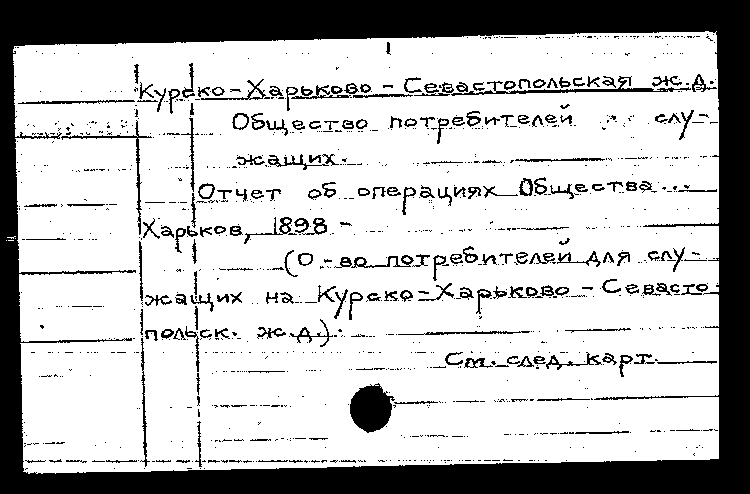 Курско-Харьково-Севастопольская ж.д.
Общество потребителей слу-
жащих.
Отчет об операциях Общества...
Харьков, 1898 -
(О-во потребителей для слу-
жащих на Курско-Харьково-Севасто-
польск. ж.д.).
См. след. карт.